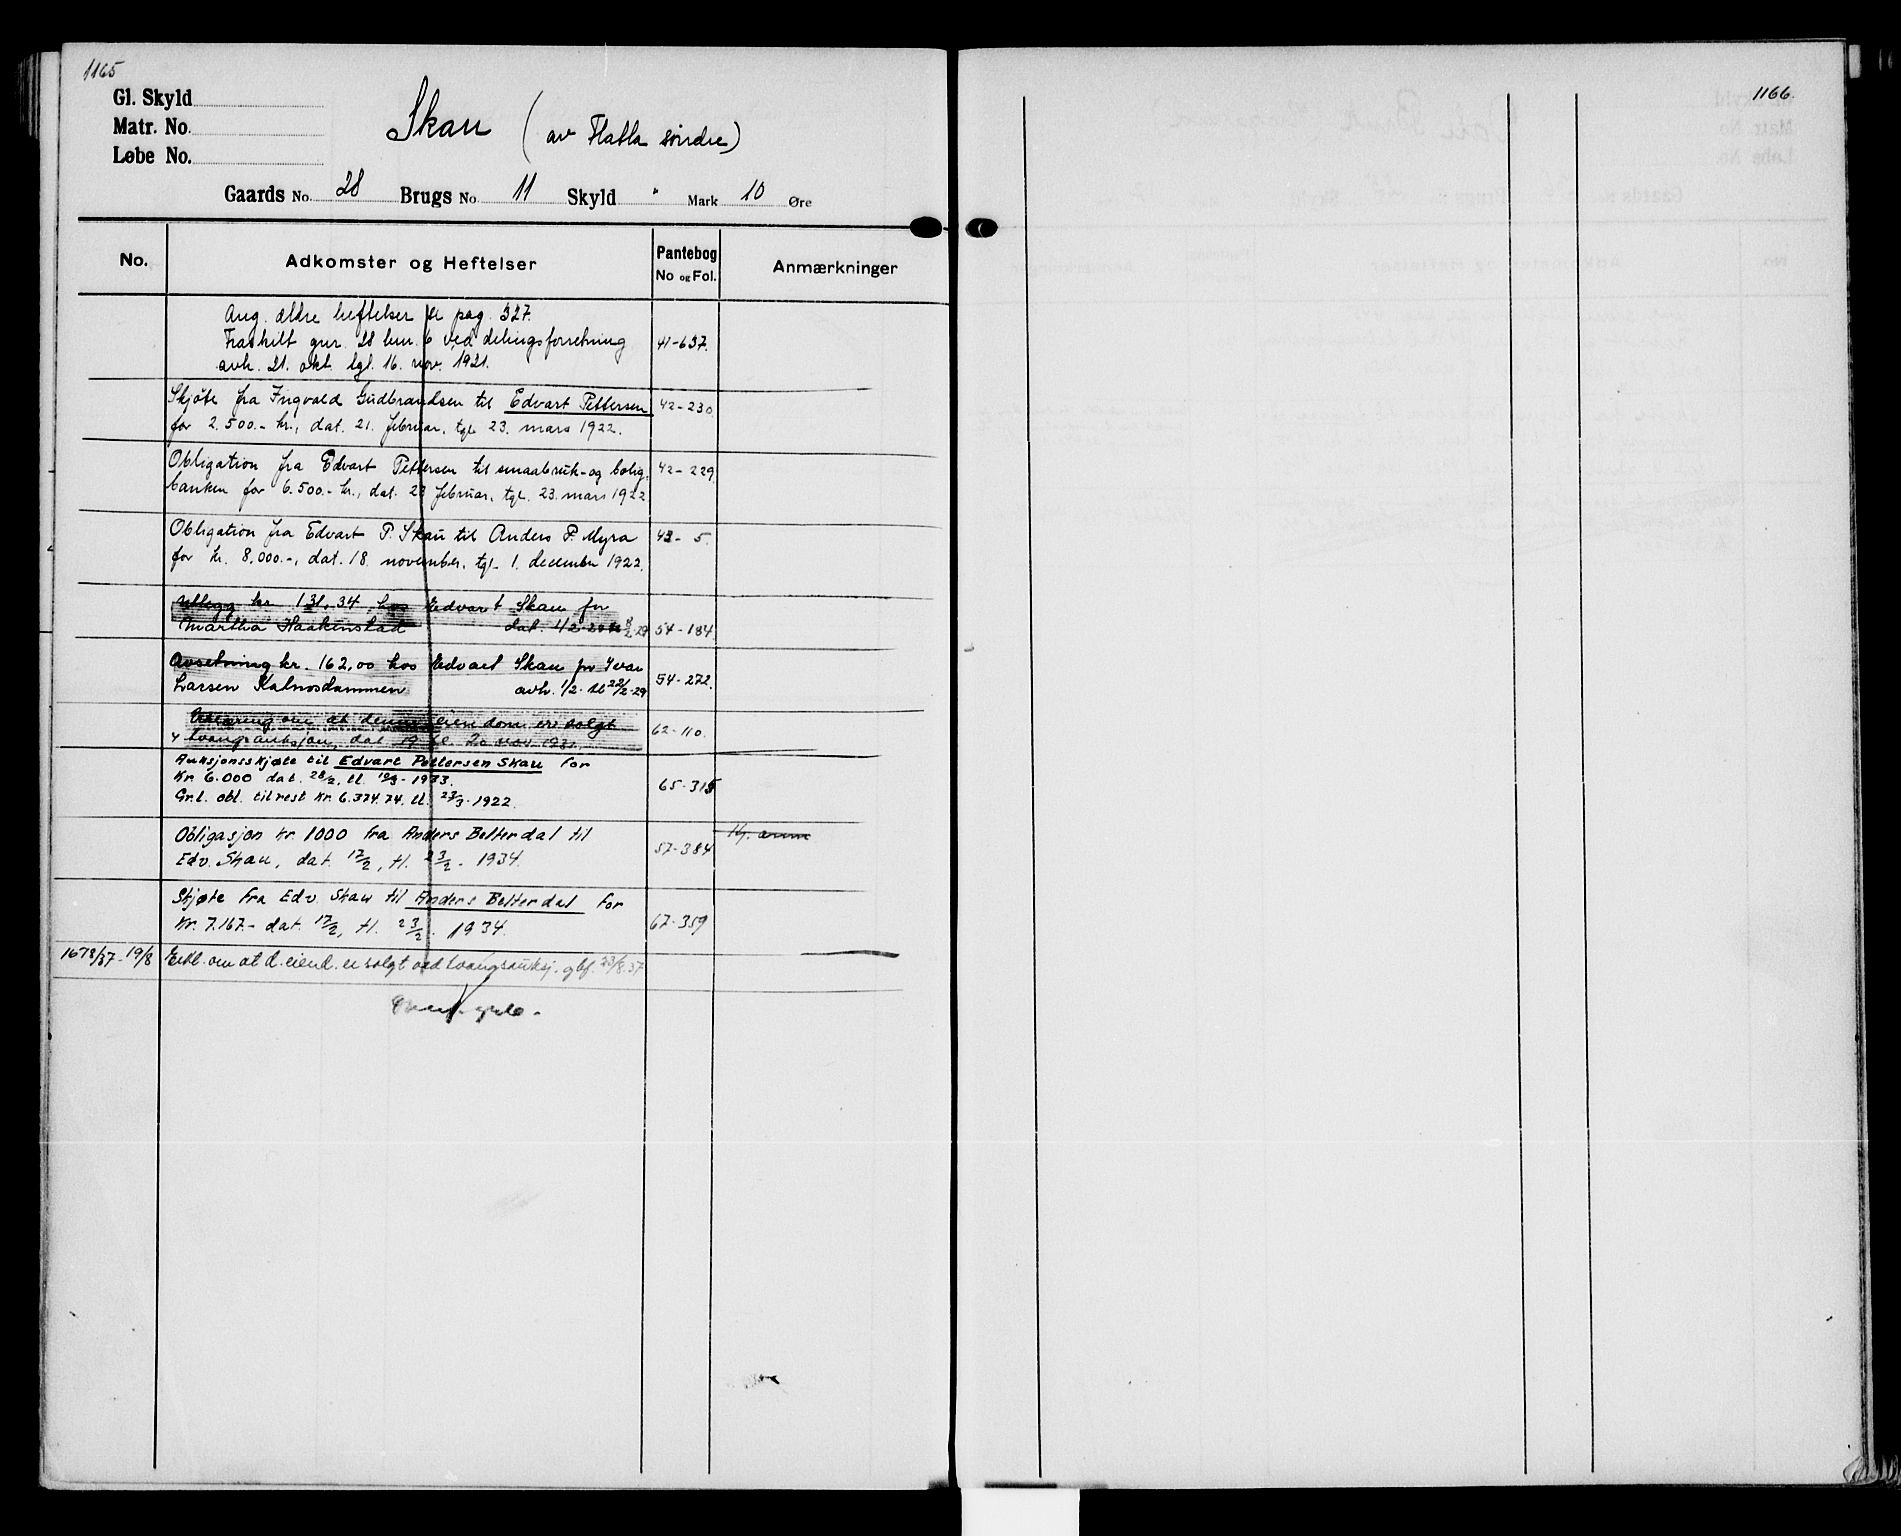 1165
Gl. Skyld
Matr. No.
Løbe No.
Skau (av Flatla søndre)
Gaards No. 28 Brugs No. 11 Skyld " Mark 10 Øre
No. Adkomster og Heftelser Pantebog No og Fol. Anmærkninger
Ang. ældre heftelser se pag. 327.
Fraskilt gnr. 28 bnr. 6 ved delingsforretning 41-637.
avh. 21. okt. tgl. 16. nov. 1921.
Skjøte fra Ingvald Gudbrandsen til Edvart Pettersen 42-230.
for 2.500.- kr., dat. 21. februar, tgl. 23. mars 1922.
Obligation fra Edvart Pettersen til smaabruk- og bolig- 42-229.
banken for 6.500.- kr., dat. 23 februar, tgl. 23. mars 1922
Obligation fra Edvart P. Skau til Anders P. Myra 43- 5.
for kr. 8.000.-, dat. 18. november, tgl. 1. december 1922.
Utlegg kr. 131.34 hos Edvart Skau for
Martha Haakenstad dat. 1/2 54-184
Avsetning kr. 162,00 hos Edvart Skau for Ivar
Larsen Kalnosdammen avh. 1/2 tl 22/2-29 54-272.
Erklæring om at denne eiendom er solgt
v tvangsauksjon, dat 19 tl. 20 nov. 62-110.
Auksjonsskjøte til Edvart Pettersen Skau for
kr. 6.000 dat. 28/2, tl. 10/3-1933. 65-315
Gr.l. obl. til rest kr. 6.374.74. tl. 23/3-1922.
Obligasjon kr. 1000 fra Anders Belterdal til
Edv. Skau, dat. 17/2, tl. 23/2. 1934. 57-384
Skjøte fra Edv. Skau til Anders Belterdal for
Kr. 7.167.- dat. 17/2, tl. 23/2. 1934. 67-359
1678/37-19/8 Erkl. om at d. eiend. er solgt ved tvangsauksj. gbf. 23/8.37
1166.